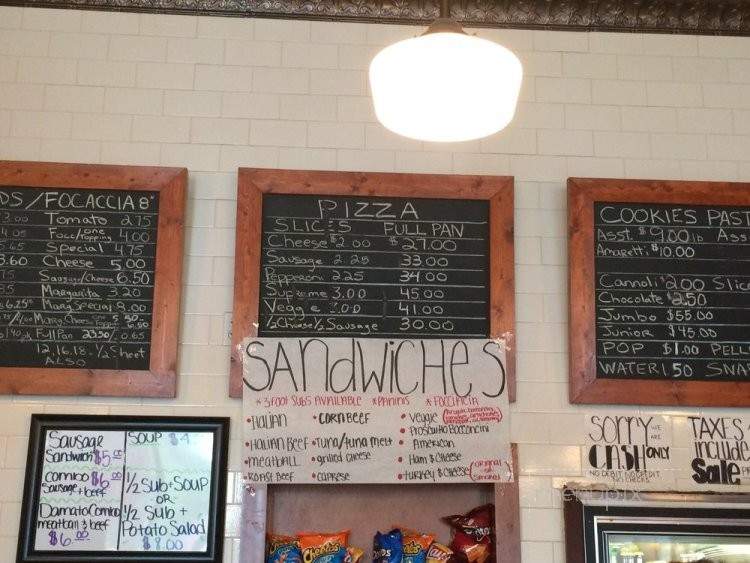 DS/FOCACCIA 8"
3.00 Tomato 2.75
4.05 Focc/one topping 4.00
5.65 Special 4.75
3.60 Cheese 5.00
Sausage/Cheese 6.50
Margarita 3.20
6.25 Marg Special 8.00
Full Pan 23.50
12.16.18 - 1/2 Sheet
ALSO
PIZZA
SLICES FULL PAN
Cheese $2.00 $27.00
Sausage 2.25 33.00
Pepperoni 2.25 34.00
Supreme 3.00 45.00
Veggie 3.00 41.00
1/2 Cheese 1/2 Sausage 30.00
COOKIES PAST
Asst. $9.00 lb Ass
Amaretti. $10.00
Cannoli $2.00 Slic
Chocolate $2.50
Jumbo $55.00
Junior $45.00
POP $1.00 PELL
WATER 1.50 SNA
SANdWiCHES
* 3 FOOT SUBS AVAILABLE * PANINIS * FOCCACIA
• ITALIAN
• ITALIAN BEEF
• MEATBALL
• ROAST BEEF
• CORN BEEF
• Tuna/tuna melt
• grilled cheese
• CAPRESE
• VEGGIE
• Prosciutto Bocconcini
• American
• Ham & Cheese
• turkey & Cheese (original or smoked)
Sausage
Sandwich $5.00
combo $6.00
Sausage + beef
Damato Combo
meatball & beef
$6.00
SOUP $4
1/2 Sub + SOUP
OR
1/2 Sub +
Potato Salad
$8.00
SORRY WE ARE
CASH ONLY
NO DEBIT NO CREDIT
NO CHECKS
TAXES
include
Sale
Cheetos
Lay's